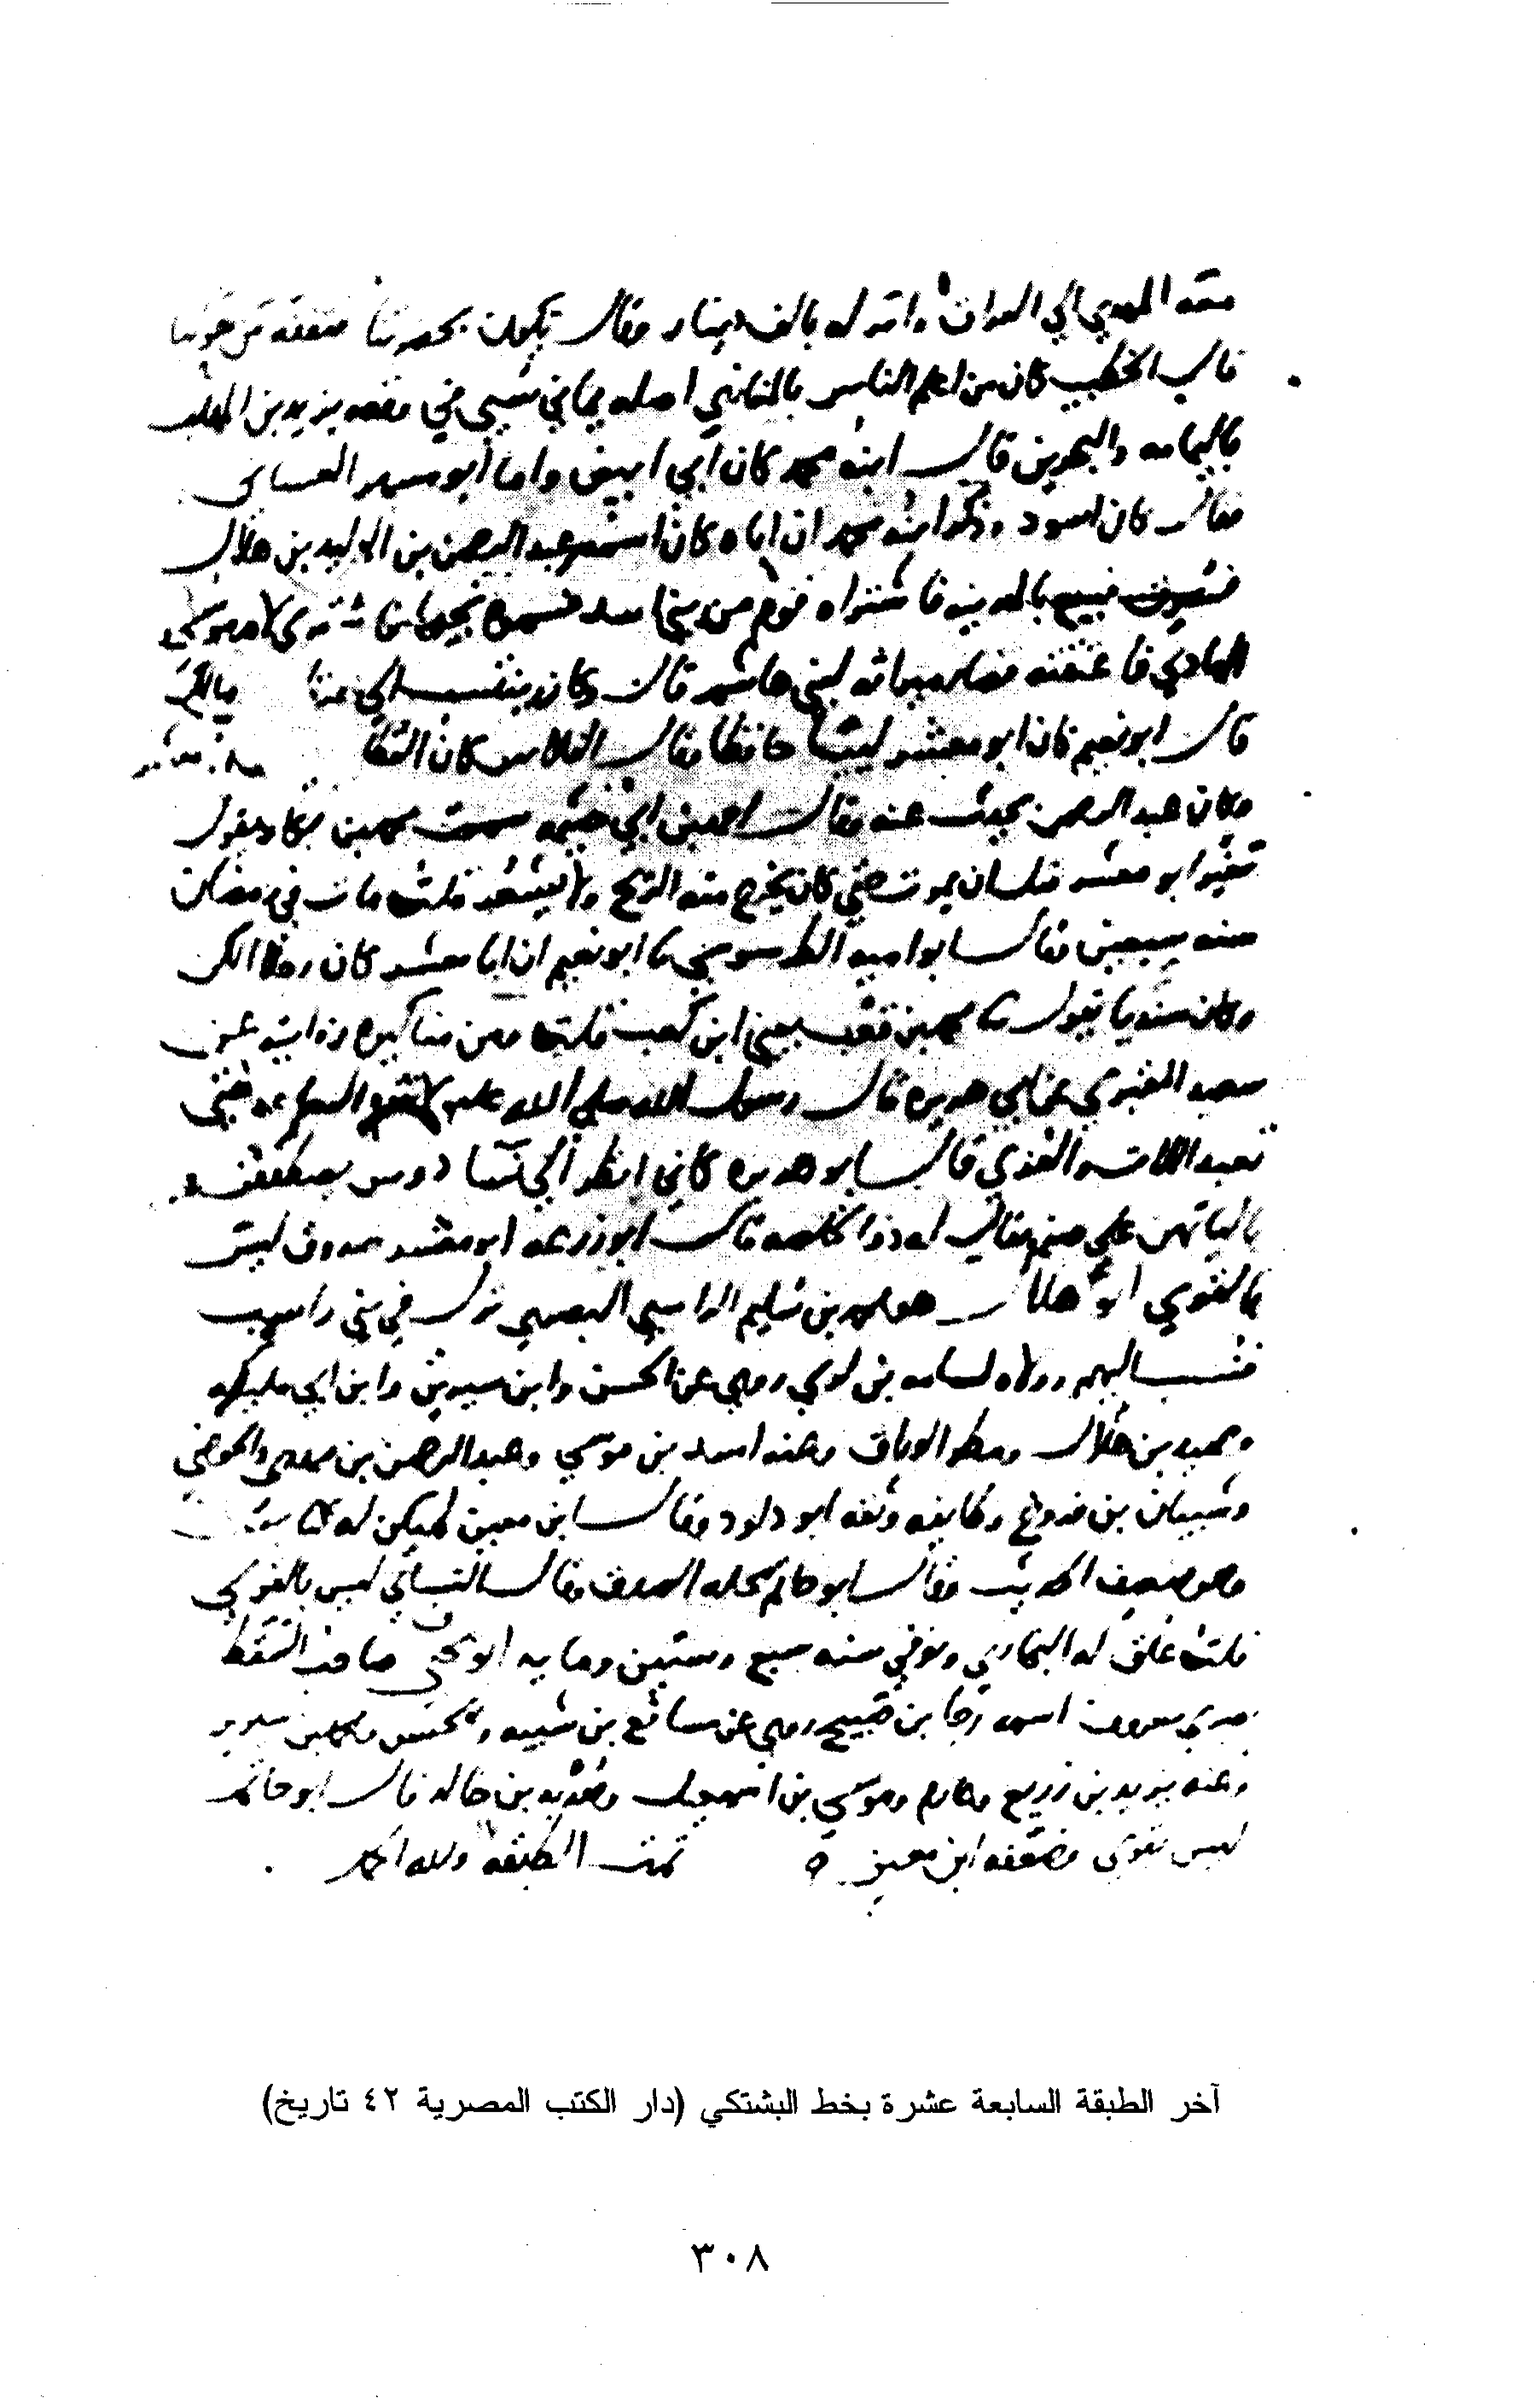 معه المهدي الي العراق وامر له بالف دينار وقال تكون بحضرتنا فتفقه من حولنا
قال الخطيب كان من اعلم الناس بالمغازي اصله يماني سبي في وقعه يزيد بن المهلب
باليمامه والبحرين قال ابنه محمد كان ابي ابيض واما ابو مسهر الغساني
فقال كان اسود وذكر ابنه محمد ان اباه كان اسمه عبد الرحمن بن الوليد بن هلال
فسرق فبيع بالمدينه فاشتراه قوم من بني اسد فسموه نجيحا فاشتري لام موسى
الهادي فاعتقته فصار ميراثه لبني هاشم قال وكان ينتسب الى حنظله بن مالك
قال ابو نعيم كان ابو معشر حافظا وقال الفلاس كان القطان
وكان عبد الرحمن يحدث عنه وقال احمد بن ابي خيثمه سمعت محمد بن بكار يقول
تغير ابو معشر قبل ان يموت حتى كان يخرج منه الريح ولا يشعر قلت مات في رمضان
سنه سبعين وقال ابو اميه الطرسوسي ثنا ابو نعيم ان ابا معشر كان رجلا الكن
وكان سنديا يقول ثنا محمد بن قعب يعني ابن كعب قلت ومن مناكيره روايته عن
سعيد المقبري عن ابي هريره قال رسول الله صلى الله عليه لا تقوم الساعه حتى
تعبد اللات والعزى قال ابو هريره كاني انظر الى نسا دوس يصطفقن
بالياتهن على صنم يقال له ذو الخلصه قال ابو زرعه ابو معشر صدوق ليس
بالقوي ابو هلال هو محمد بن سليم الراسبي البصري نزل في بني راسب
فنسب اليهم وولاه لسامه بن لوي روى عن الحسن وابن سيرين وابن ابي مليكه
وحميد بن هلال ومطر الوراق وعنه اسد بن موسى وعبد الرحمن بن مهدي والحوضي
وشيبان بن فروخ وطايفه وثقه ابو داود وقال ابن معين لم يكن له كتاب
وهو ضعيف الحديث وقال ابو حاتم محله الصدق وقال النسائي ليس بالقوي
قلت علق له البخاري وتوفي سنه سبع وستين ومايه ابو يحيى صاحب السقط
بصري معروف اسمه رجا بن صبيح روى عن مسافع بن شيبه والحسن ومحمد بن سيرين
وعنه يزيد بن زريع وعارم وموسى بن اسمعيل وهدبه بن خالد قال ابو حاتم
ليس بقوي وضعفه ابن معين ه تمت الطبقه ولله الحمد
آخر الطبقة السابعة عشرة بخط البشتكي (دار الكتب المصرية ٤٢ تاريخ)
٣٠٨